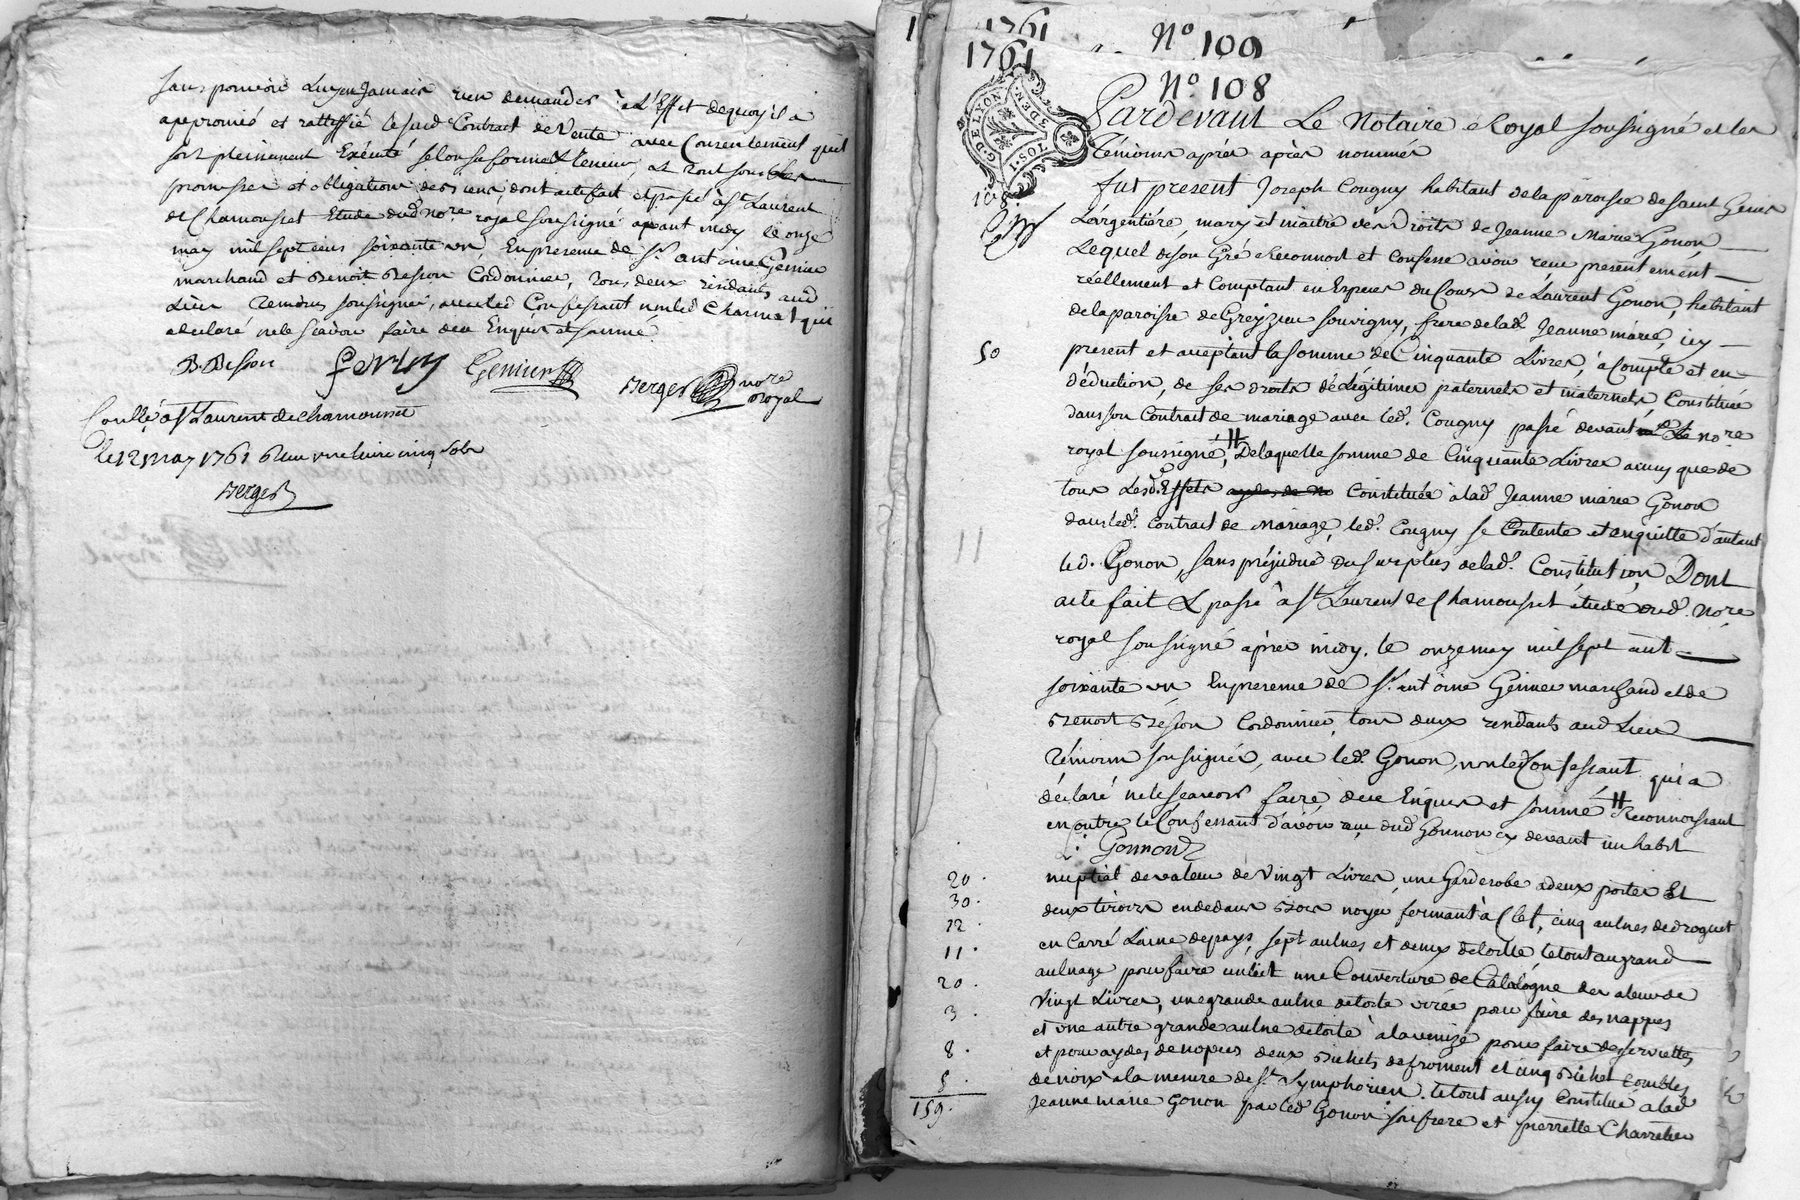 sans pouvoir luy en Jamais rien demander à L'Effet dequoy il a
approuvé et rattiffié le susd Contract de Vente avec Consentement quil
soit pleinement Exécuté selon sa forme & teneur, et tout sous les
promesses et obligations des siens, dont acte fait et passé à St Laurent
de Chamousset Etude dud nore. royal soussigné avant midy le onze
may mil sept cens soixante un, En presence de Sr. antoine Genier
marchand et Benoit Besson Cordonnier, tous deux residants aud
Lieu temoins soussignés, avec led Confessant non led Charmet qui
a declaré ne le scavoir faire de ce Enquis et sommé.
B. Besson
Genier
Berger nore royal
Conllé à St Laurent de chamousset
le 12 may 1761 Reçu une livre cinq sols
Berger
1761
1761
No 109
No 108
G. DE LYON
1. SOL
3 DEN.
108.
Pardevant Le Notaire Royal soussigné et les
Témoins après après nommés
fut présent Joseph Cougny habitant de la paroisse de saint Genis
Largentiére, mary et maitre des Droits de Jeanne Marie Gonon
Lequel de son Gré Reconnoit et Confesse avoir reçu presentement
réellement et Comptant en Especes du Cours de Laurent Gonon, habitant
de la paroisse de Greyzieu souvigny, frere de lad. Jeanne marie, icy
50
présent et acceptant la somme de Cinquante Livres, à Compte et en
déduction, de ses droits de Légitimes paternels et maternels, Constitués
dans son Contract de mariage avec led. Cougny passé devant led nore
royal soussigné, # De laquelle somme de Cinquante Livres ainsy que de
tous Lesd. Effets Constitués à lad Jeanne marie Gonon
dans led. Contract de Mariage, led. Cougny se Contente et en quitte d'autant
led. Gonon, sans préjudice du surplus de lad. Constitution, Dont
acte fait & passé à St Laurent de Chamousset étude dud. nore
royal soussigné après midy, le onze may mil sept cent
soixante un En presence de Sr. antoine Genier marchand et de
Benoit Besson Cordonnier, tous deux residants aud Lieu
Témoins soussignés, avec led. Gonon, non led Confessant qui a
déclaré ne le scavoir faire de ce Enquis et sommé # Reconnoissant
en outre le Confessant d'avoir reçu dud Gonnon cy devant un habit
L: Gonnon
20. nuptial de valeur de Vingt Livres, une Garderobe à deux portes Et
30. deux tiroirs en dedans Bois noyer fermant à Clef, cinq aulnes de droguet
12. en Carré Laine de pays, sept aulnes et demy de toille le tout au grand
11. aulnage pour faire un lict une Couverture de Catalogne de valeur de
20. Vingt Livres, une grande aulne de toile virée pour faire des nappes
3. et une autre grande aulne de toile à la venise pour faire des serviettes
8. et pour aydes de nopces deux Bichets de froment et cinq Bichet combles
5. de noix à la mesure de St. Symphorien. le tout aussy Constitué à lad
159. Jeanne marie Gonon par led Gonon son frere et pierrette Charretier